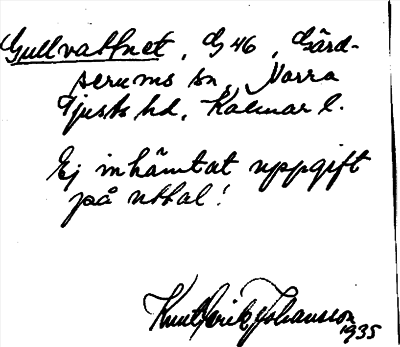 Gullvattnet, G 46, Gärd-
serums sn, Norra
Tjusts hd, Kalmar l.
Ej inhämtat uppgift
på uttal!
Knut Erik Johansson
1935